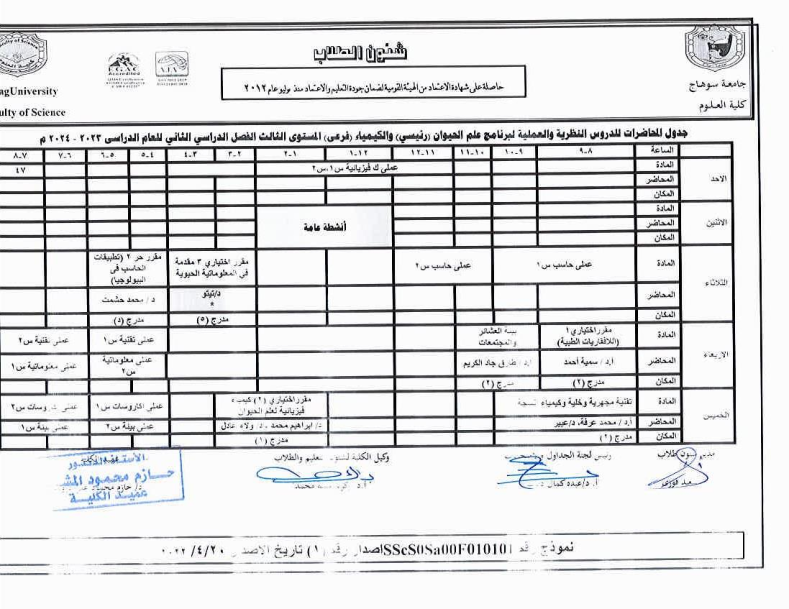 شئون الطلاب
حاصلة على شهادة الاعتماد من الهيئة القومية لضمان جودة التعليم والاعتماد منذ يوليو عام ٢٠١٢
جامعة سوهاج
كلية العلوم
agUniversity
ulty of Science
جدول المحاضرات للدروس النظرية والعملية لبرنامج علم الحيوان (رئيسي) والكيمياء (فرعى) المستوى الثالث الفصل الدراسي الثاني للعام الدراسى ٢٠٢٣ - ٢٠٢٤ م
الساعة ٨-٩ ٩-١٠ ١٠-١١ ١١-١٢ ١٢-١ ١-٢ ٢-٣ ٣-٤ ٤-٥ ٥-٦ ٦-٧ ٧-٨
الاحد
المادة عملى ك فيزيائية س١،س٢ ٤٧
المحاضر
المكان
الاثنين
المادة
المحاضر أنشطة عامة
المكان
الثلاثاء
المادة عملى حاسب س١ عملى حاسب س٢ مقرر اختياري ٣ مقدمة في المعلوماتية الحيوية مقرر حر ٢ (تطبيقات الحاسب فى البيولوجيا)
المحاضر د/تيتو * د/ محمد حشمت
المكان مدرج (٥) مدرج (د)
الاربعاء
المادة مقرر اختياري ١ (اللافقاريات الطبية) بيئة العشائر والمجتمعات عملى تقنية س١ عملى تقنية س٢
المحاضر أ.د/ سمية أحمد أ.د/ طارق جاد الكريم عملى معلوماتية س٢ عملى معلوماتية س١
المكان مدرج (٢) مدرج (٢)
الخميس
المادة تقنية مجهرية وخلية وكيمياء مقرر اختياري (٢) كيمياء فيزيائية لعلم الحيوان عملى اكاروسات س١ عملى س٢
المحاضر أ.د/ محمد عرفة، د/عبير د/ ابراهيم محمد ولاء عادل عملى بيئة س٢ عملى بيئة س١
المكان مدرج (٢) مدرج (١)
رئيس لجنة الجداول
أ.د/عبده كمال
وكيل الكلية لشئون التعليم والطلاب
الأستاذ الدكتور
حازم محمود
عميد الكلية
نموذج رقم SScS0Sa00F010101 اصدار رقم (١) تاريخ الاصدار ٤/٢٠/